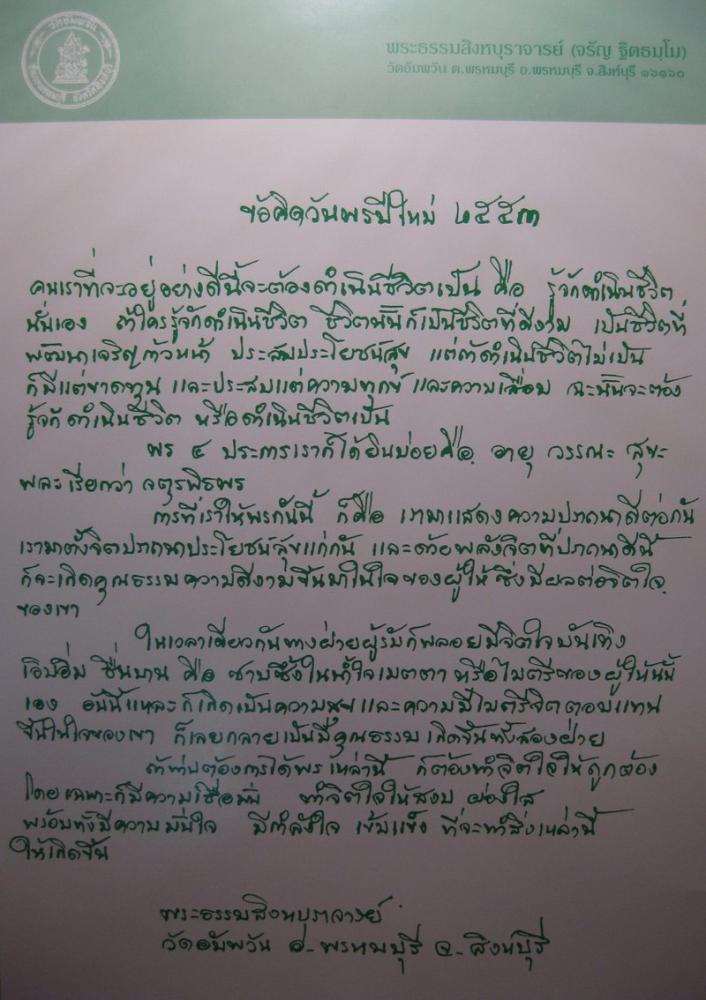 พระธรรมสิงหบุราจารย์ (จรัญ ฐิตธมฺโม)
วัดอัมพวัน ต.พรหมบุรี อ.พรหมบุรี จ.สิงห์บุรี ๑๖๑๖๐
วัดอัมพวัน
ข้อคิดวันพรปีใหม่ ๒๕๕๓
คนเราที่จะอยู่อย่างดีนี้จะต้องดำเนินชีวิตเป็น คือ รู้จักดำเนินชีวิต
นั่นเอง ถ้าใครรู้จักดำเนินชีวิต ชีวิตนั้นก็เป็นชีวิตที่ดีงาม เป็นชีวิตที่
พัฒนาเจริญก้าวหน้า ประสบประโยชน์สุข แต่ถ้าดำเนินชีวิตไม่เป็น
ก็มีแต่ขาดทุน และประสบแต่ความทุกข์ และความเสื่อม ฉะนั้นจะต้อง
รู้จักดำเนินชีวิต หรือดำเนินชีวิตเป็น
พร ๔ ประการเราก็ได้ยินบ่อยคือ อายุ วรรณะ สุขะ
พละ เรียกว่า จตุรพิธพร
การที่เราให้พรกันนี้ ก็คือ เรามาแสดงความปรารถนาดีต่อกัน
เรามาตั้งจิตปรารถนาประโยชน์สุขแก่กัน และด้วยพลังจิตที่ปรารถนาดีนี้
ก็จะเกิดคุณธรรมความดีงามขึ้นมาในใจของผู้ให้ ซึ่งมีผลต่อจิตใจ
ของเขา
ในเวลาเดียวกันทางฝ่ายผู้รับก็พลอยมีจิตใจบันเทิง
เอิบอิ่ม ชื่นบาน คือ ซาบซึ้งในน้ำใจเมตตา หรือไมตรีของผู้ให้นั้น
เอง อันนี้แหละก็เกิดเป็นความสุขและความมีไมตรีจิตตอบแทน
ขึ้นในใจของเขา ก็เลยกลายเป็นมีคุณธรรมเกิดขึ้นทั้งสองฝ่าย
ถ้าท่านต้องการได้พรเหล่านี้ ก็ต้องทำจิตใจให้ถูกต้อง
โดยเฉพาะก็มีความเชื่อมั่น ทำจิตใจให้สงบ ผ่องใส
พร้อมทั้งมีความมั่นใจ มีกำลังใจ เข้มแข็ง ที่จะทำสิ่งเหล่านี้
ให้เกิดขึ้น
พระธรรมสิงหบุราจารย์
วัดอัมพวัน อ. พรหมบุรี จ. สิงห์บุรี